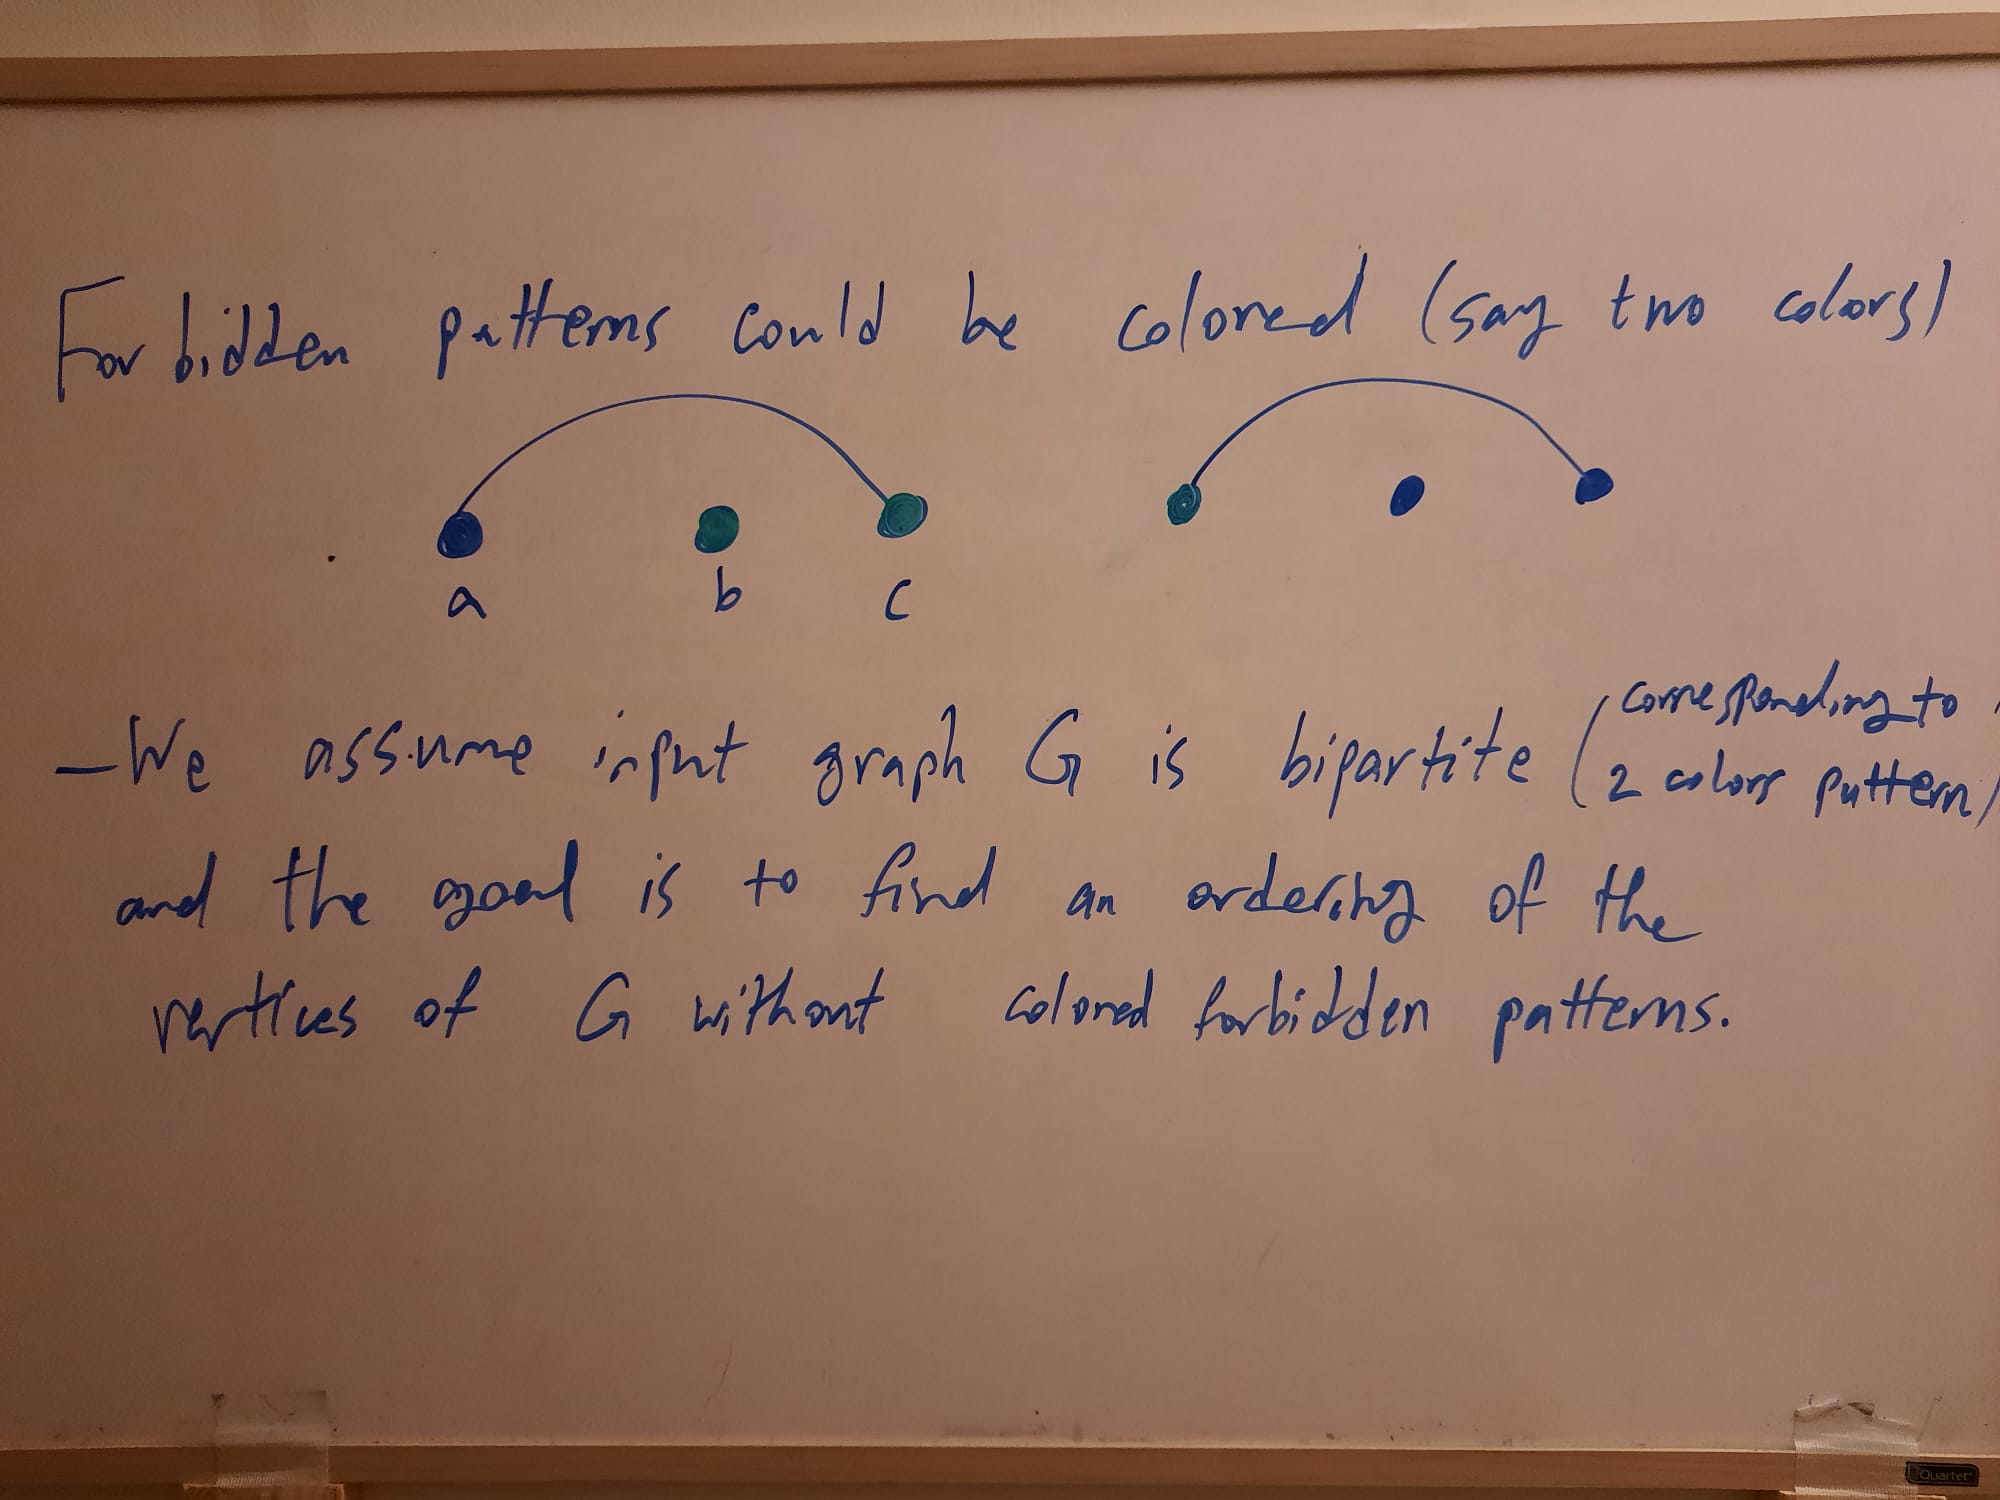 Forbidden patterns could be colored (say two colors)
a b c
- We assume input graph G is bipartite (corresponding to 2 colors pattern)
and the goal is to find an ordering of the
vertices of G without colored forbidden patterns.
Quartet